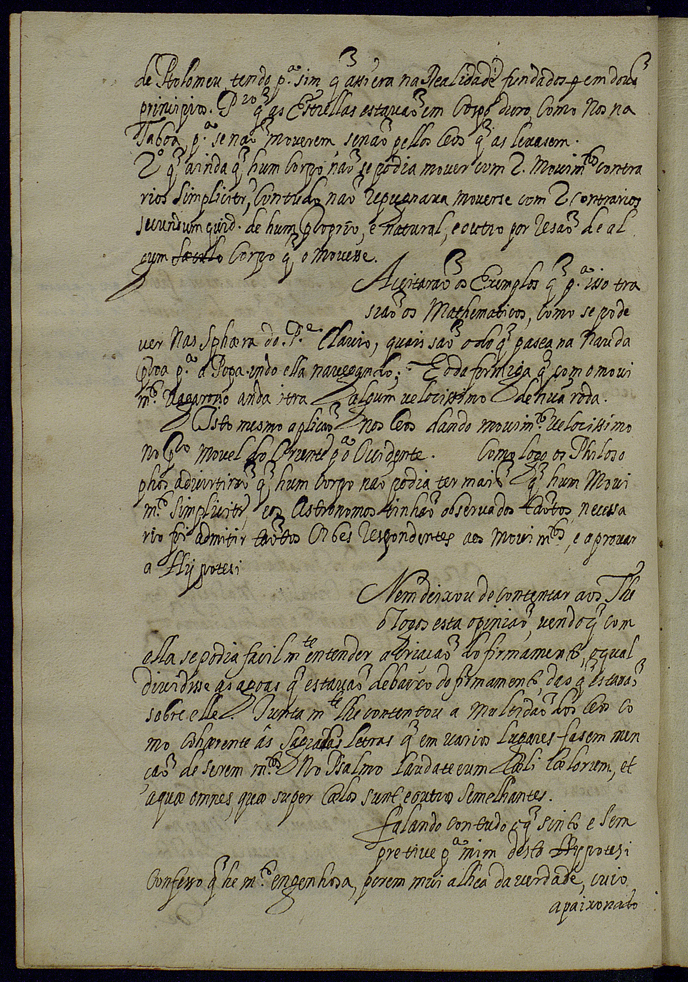 de Ptolomeu tendo p.ª sim q̃ assi era na Realidade fundados em dous
principios. P.ro q̃ as Estrellas estauaõ em Corpo duro, Como Nos na
Taboa p.ª se naõ mouerem senaõ pellos Ceos q̃ as leuasem.
2.º q̃ ainda q̃ hum Corpo naõ se podia mouer com 2. Mouim.tos contra
rios Simpliciter, Contudo naõ repugnaua mouerse com 2 contrarios
secundum quid. de hum proprio, e natural, e outro por resaõ de al
gum Corpo q̃ o mouesse.
Aceitaraõ os Exemplos q̃ p.ª isso tra
siaõ os Mathematicos, como se pode
uer Na Sphæra do P.e Clauio, quais saõ o do q̃ pasea na Nau da
Proa p.ª a Popa indo ella nauegando; E o da formiga q̃ com o moui
m.to uagaroso anda
algum uelocissimo de huã roda.
Isto mesmo aplicaõ Nos Ceos dando mouim.to uelocissimo
no p.ro mouel do Oriente p.ª o Occidente. Como logo os Philoso
phos aduirtiraõ q̃ hum Corpo naõ podia ter mais q̃ hum Moui
m.to Simpliciter e os Astronomos tinhaõ obseruados tantos, necessa
rio foi admitir tantos Orbes respondentes aos mouim.tos, e aprouar
a Hypotesi
Nem deixou de contentar aos The
ologos esta opiniaõ, uendo q̃ com
ella se podia facilm.te entender a Criacaõ do firmamento, o qual
diuidisse as agoas q̃ estauaõ debaixo do firmamento, das q̃ estauaõ
sobre elle. Juntam.te lhe contentou a Multidaõ dos Ceos co
mo Coherente ás Sagradas letras q̃ em uarios lugares fasem men
caõ de serem m.tos No Psalmo Laudate eum Cæli Cælorum, et
aquæ omnes quæ super Cælos sunt e outros Semelhantes.
falando contudo o q̃ sinto e Sem
pre tiue p.ª mim desta Hypotesi
Confesso q̃ he m.to engenhosa, porem mui alhea da uerdade, cuio
apaixonado